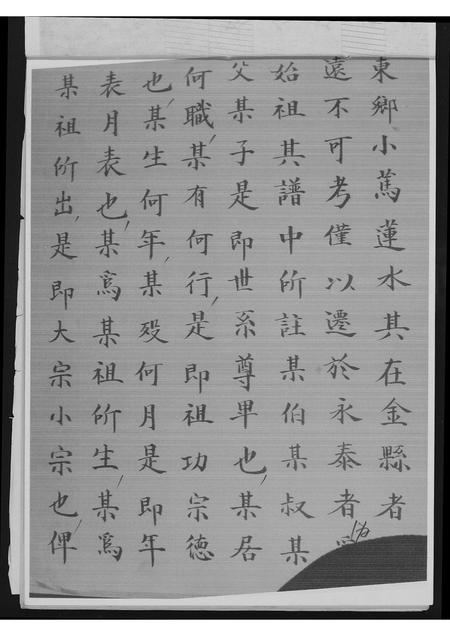 東鄉小蔦蓮水其在金縣者
遠不可考僅以遷於永泰者為
始祖其譜中所註某伯某叔某
父某子是即世系尊卑也某居
何職某有何行是即祖功宗德
也某生何年某歿何月是即年
表月表也某爲某祖所生某爲
某祖所出是即大宗小宗也俾